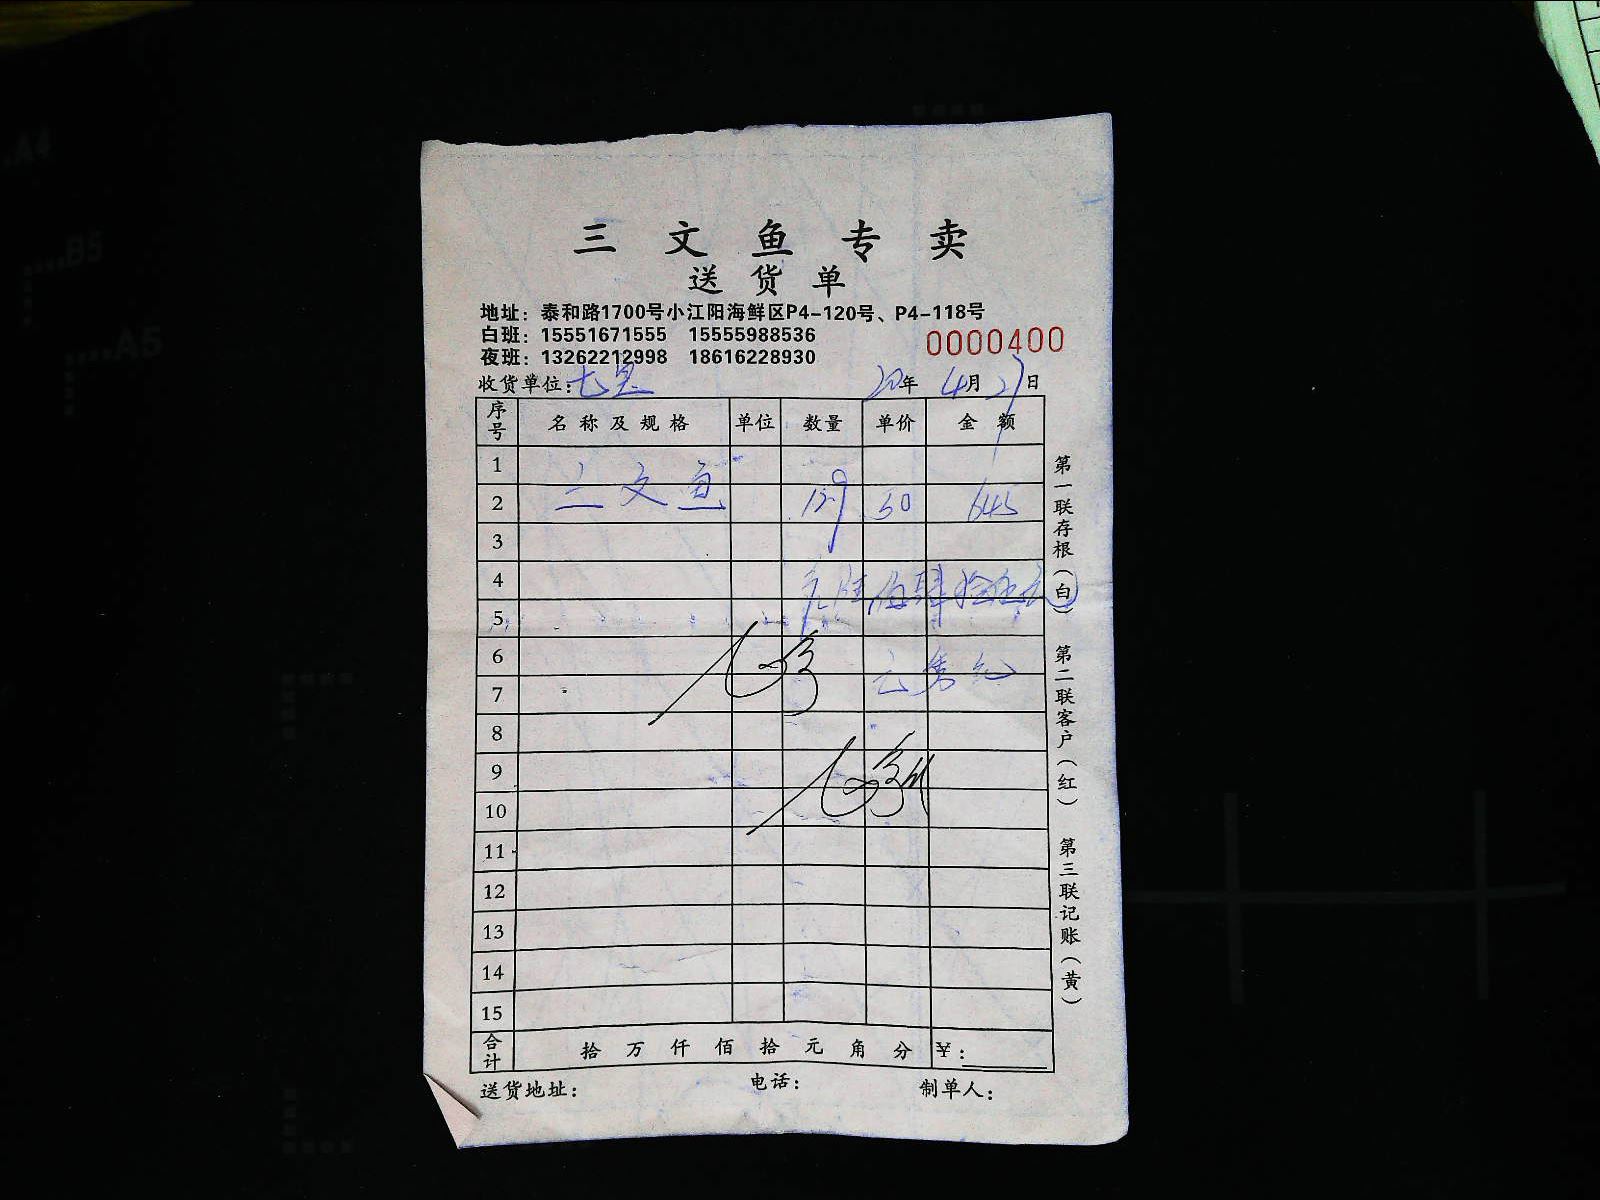 三文鱼专卖
送货单
地址：泰和路1700号小江阳海鲜区P4-120号、P4-118号
白班：15551671555 15555988536
夜班：13262212998 18616228930
0000400
收货单位：七 20年4月27日
序号 名称及规格 单位 数量 单价 金额
1
2 三文鱼 12.9 50 645
3
4 陆佰肆拾伍元
5
6
7
8
9
10
11
12
13
14
15
合计 拾万仟佰拾元角分 ¥：
送货地址： 电话： 制单人：
第一联存根（白）
第二联客户（红）
第三联记账（黄）